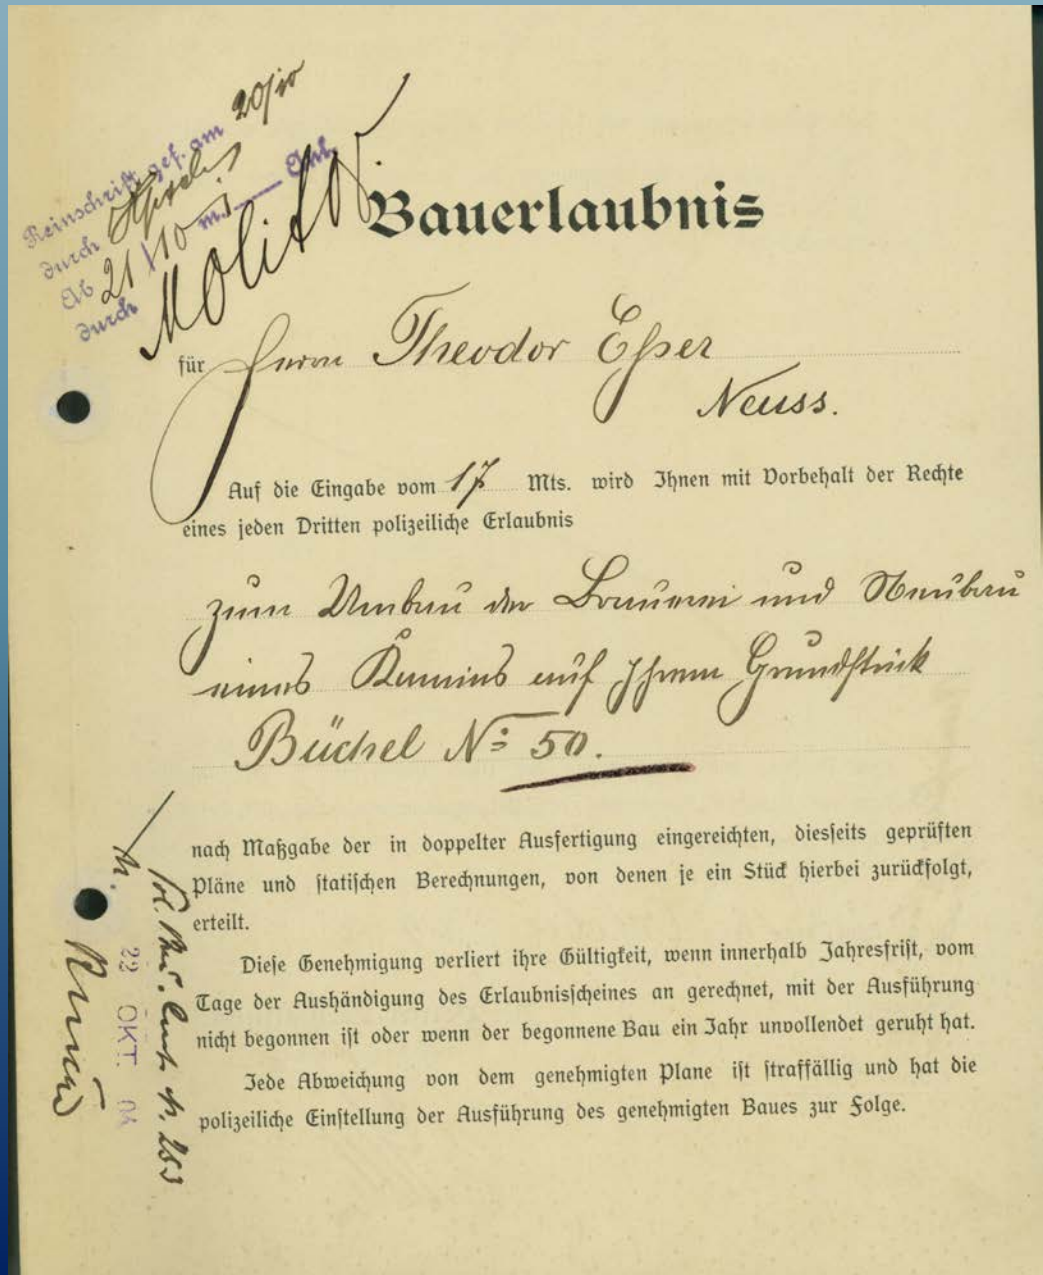 Reinschrift gef. am 20/10
durch
Ab 21/10 m. Anl.
durch Molitor.
Bauerlaubnis
für Herrn Theodor Eßer
Neuss.
Auf die Eingabe vom 17 Mts. wird Ihnen mit Vorbehalt der Rechte
eines jeden Dritten polizeiliche Erlaubnis
zum Umbau der Brauerei und Neubau
eines Kamins auf Ihrem Grundstück
Büchel No 50.
nach Maßgabe der in doppelter Ausfertigung eingereichten, diesseits geprüften
Pläne und statischen Berechnungen, von denen je ein Stück hierbei zurückfolgt,
erteilt.
Diese Genehmigung verliert ihre Gültigkeit, wenn innerhalb Jahresfrist, vom
Tage der Aushändigung des Erlaubnisscheines an gerechnet, mit der Ausführung
nicht begonnen ist oder wenn der begonnene Bau ein Jahr unvollendet geruht hat.
Jede Abweichung von dem genehmigten Plane ist straffällig und hat die
polizeiliche Einstellung der Ausführung des genehmigten Baues zur Folge.
22 OKT. 04